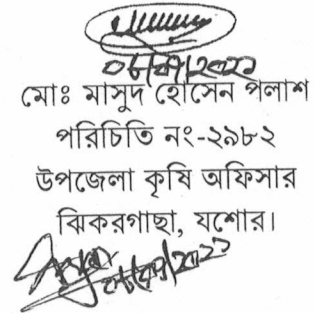 মোঃ মাসুদ হোসেন পলাশ
পরিচিতি নং-২৯৮২
উপজেলা কৃষি অফিসার
ঝিকরগাছা, যশোর।